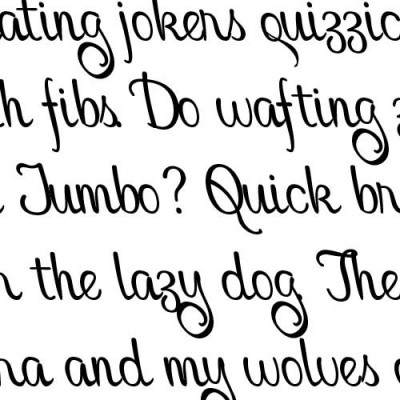 ating jokers quizzic
h fibs. Do wafting z
Jumbo? Quick br
the lazy dog. The
na and my wolves